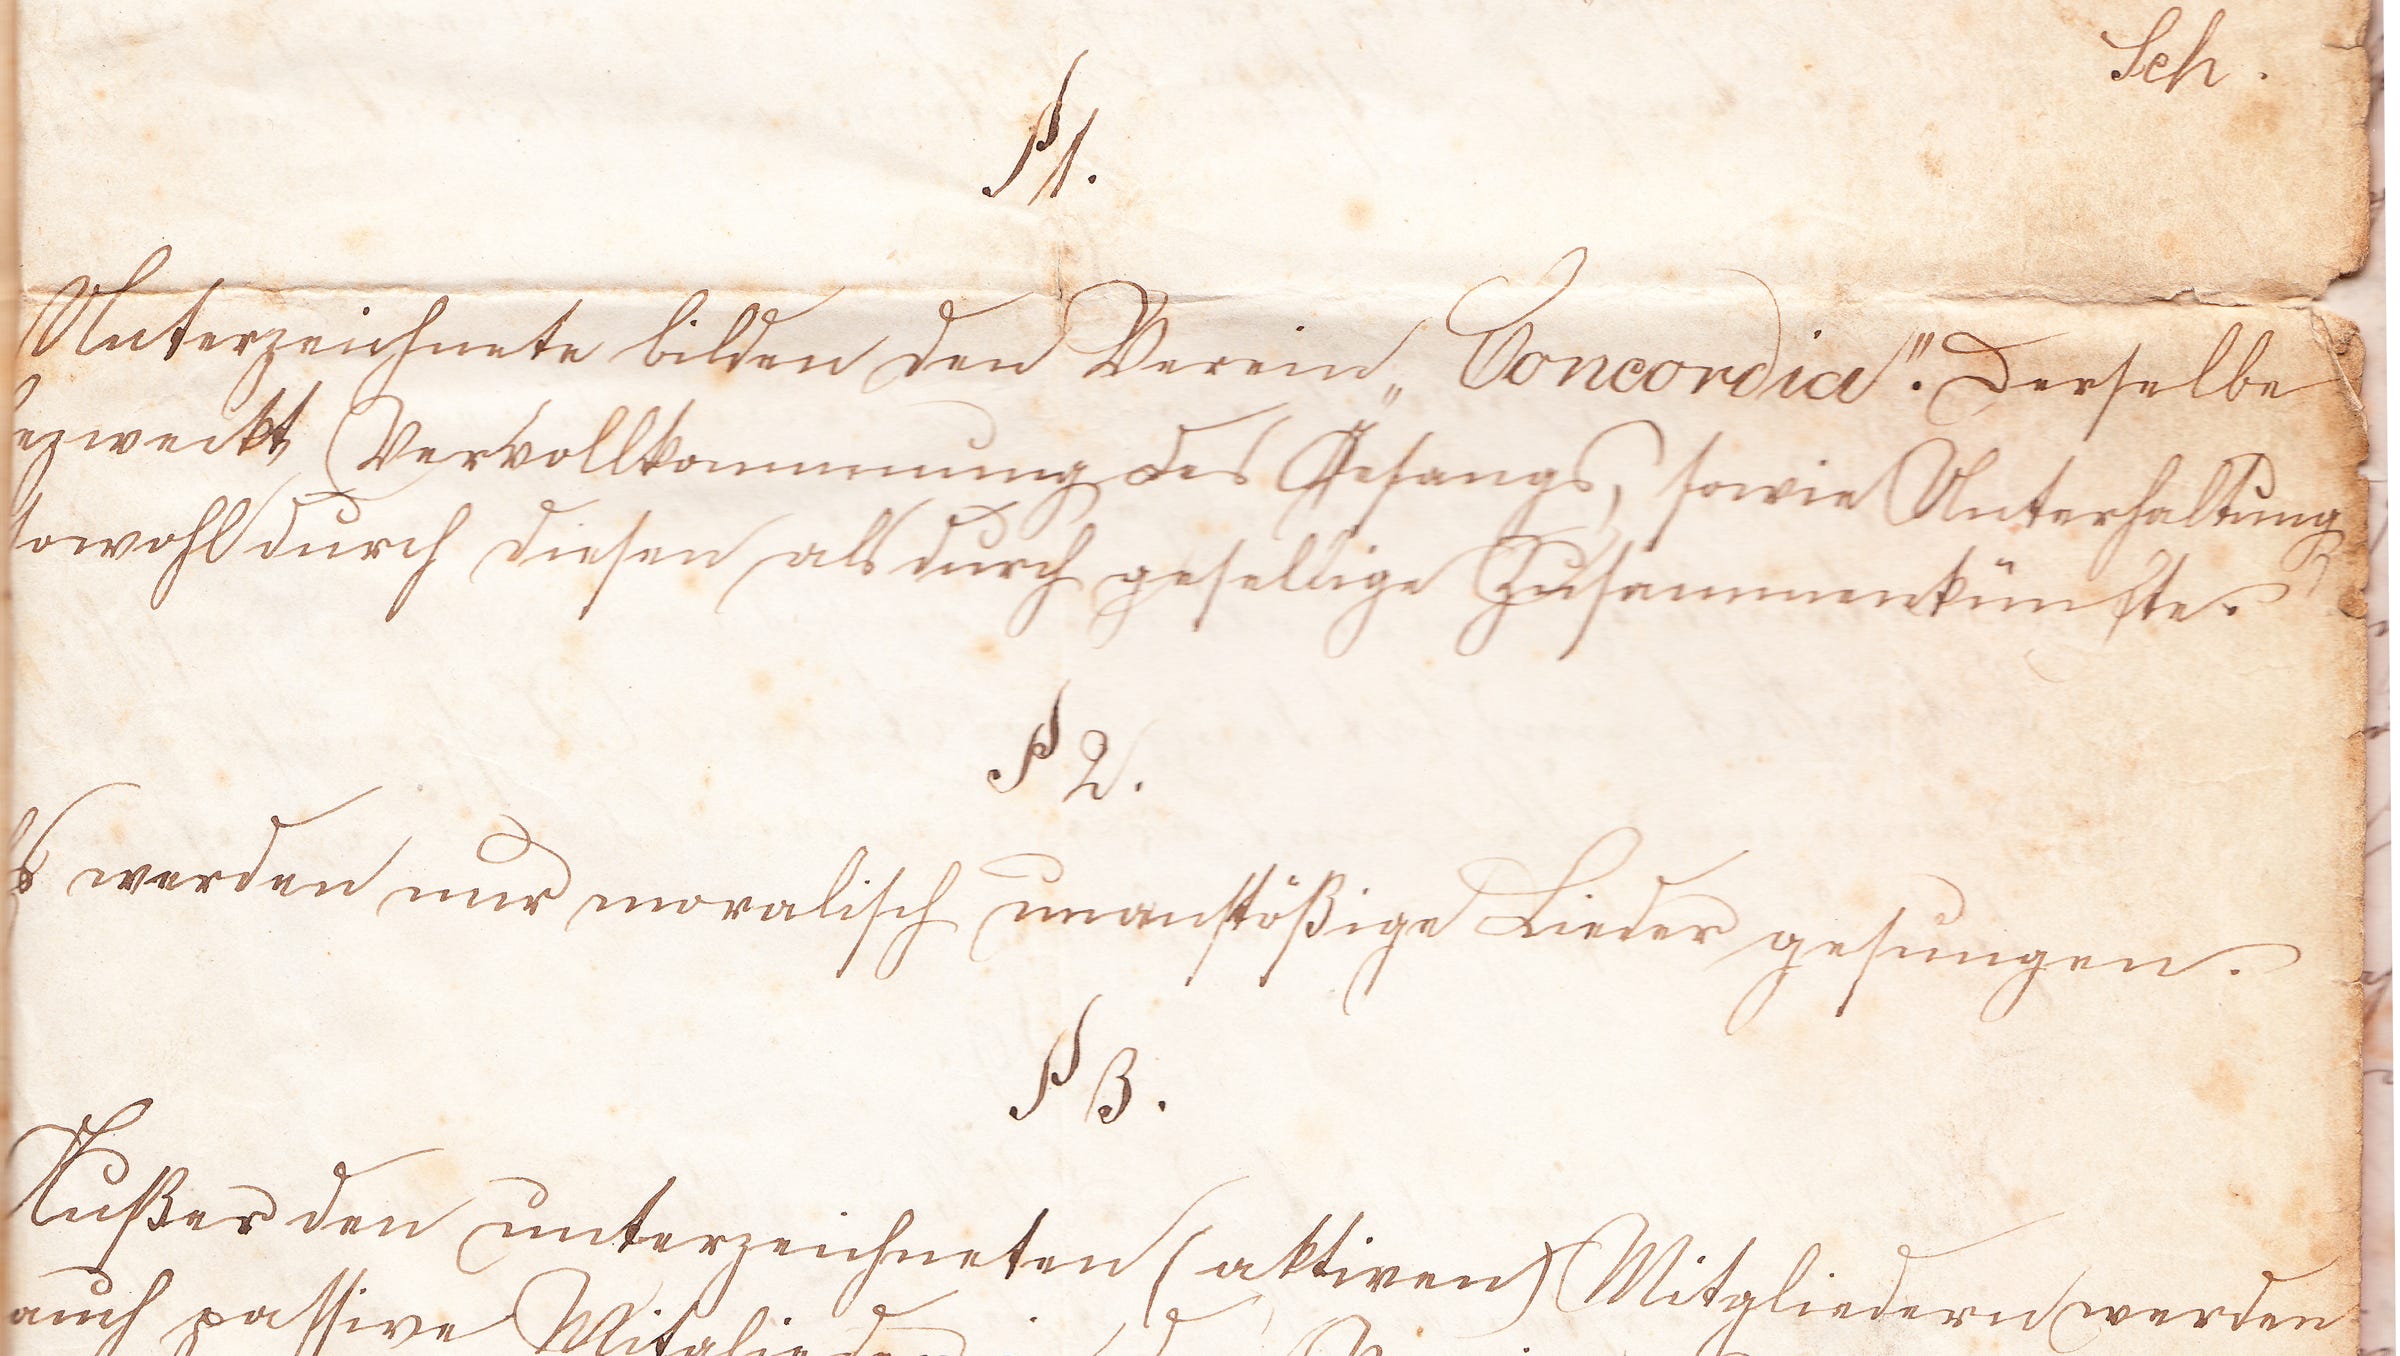 Sch.
§ 1.
Unterzeichnete bilden den Verein „Concordia“. Derselbe
bezweckt Vervollkommnung des Gesangs, sowie Unterhaltung
sowohl durch diesen als durch gesellige Zusammenkünfte.
§ 2.
Es werden nur moralisch unanstößige Lieder gesungen.
§ 3.
Außer den unterzeichneten (aktiven) Mitgliedern werden
auch passive Mitglieder in den